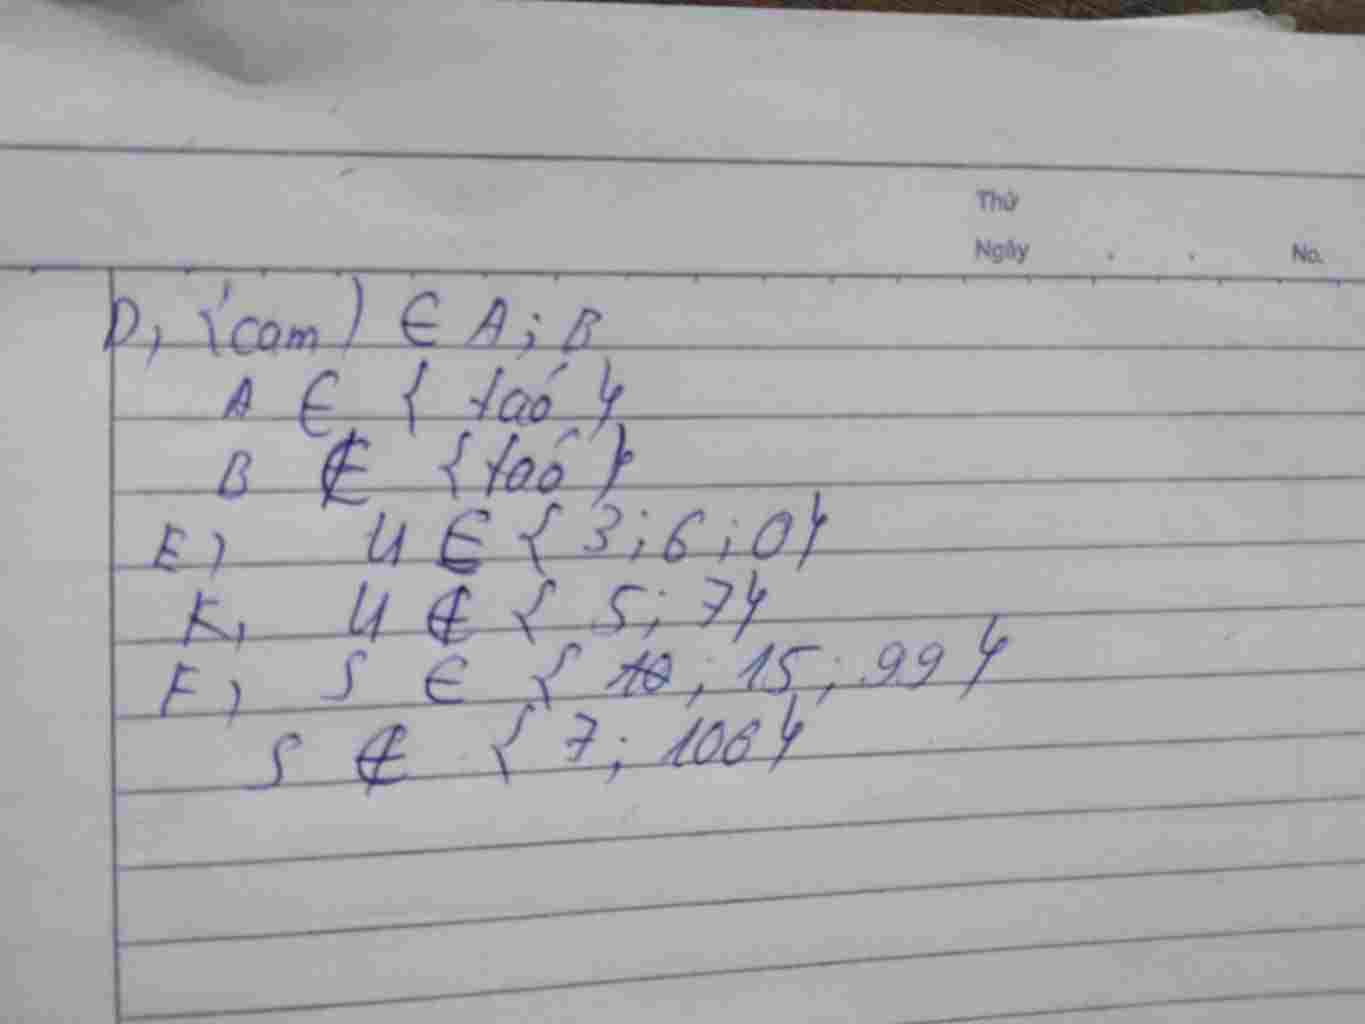 Thứ
Ngày . . No.
D, {cam} ∈ A; B
A ∈ { taó }
B ∉ {taó }
E) U ∈ { 3; 6; 0}
K, U ∉ { 5; 7}
F, S ∈ { 10; 15; 99 }
S ∉ { 7; 106}